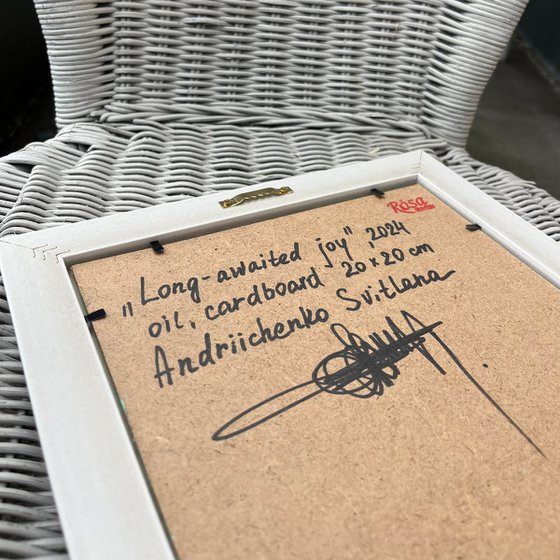 Rosa
„Long-awaited joy", 2024
oil, cardboard 20x20 cm
Andriichenko Svitlana